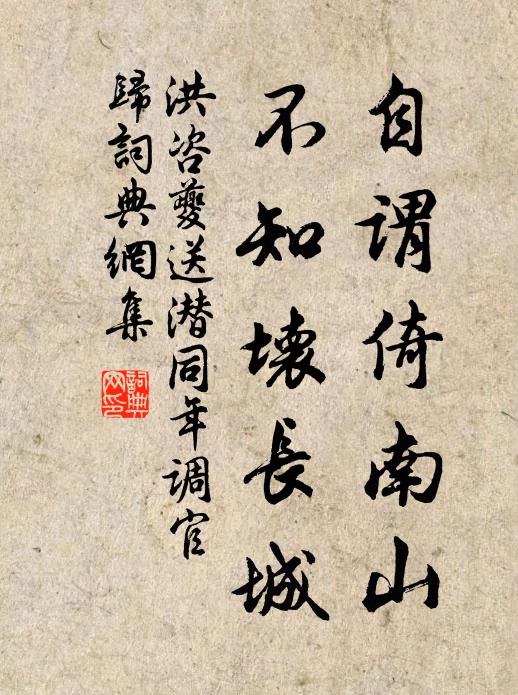 自谓倚南山
不知壞長城
洪咨夔送潜同年调官
歸詞典網集
詞典
网印